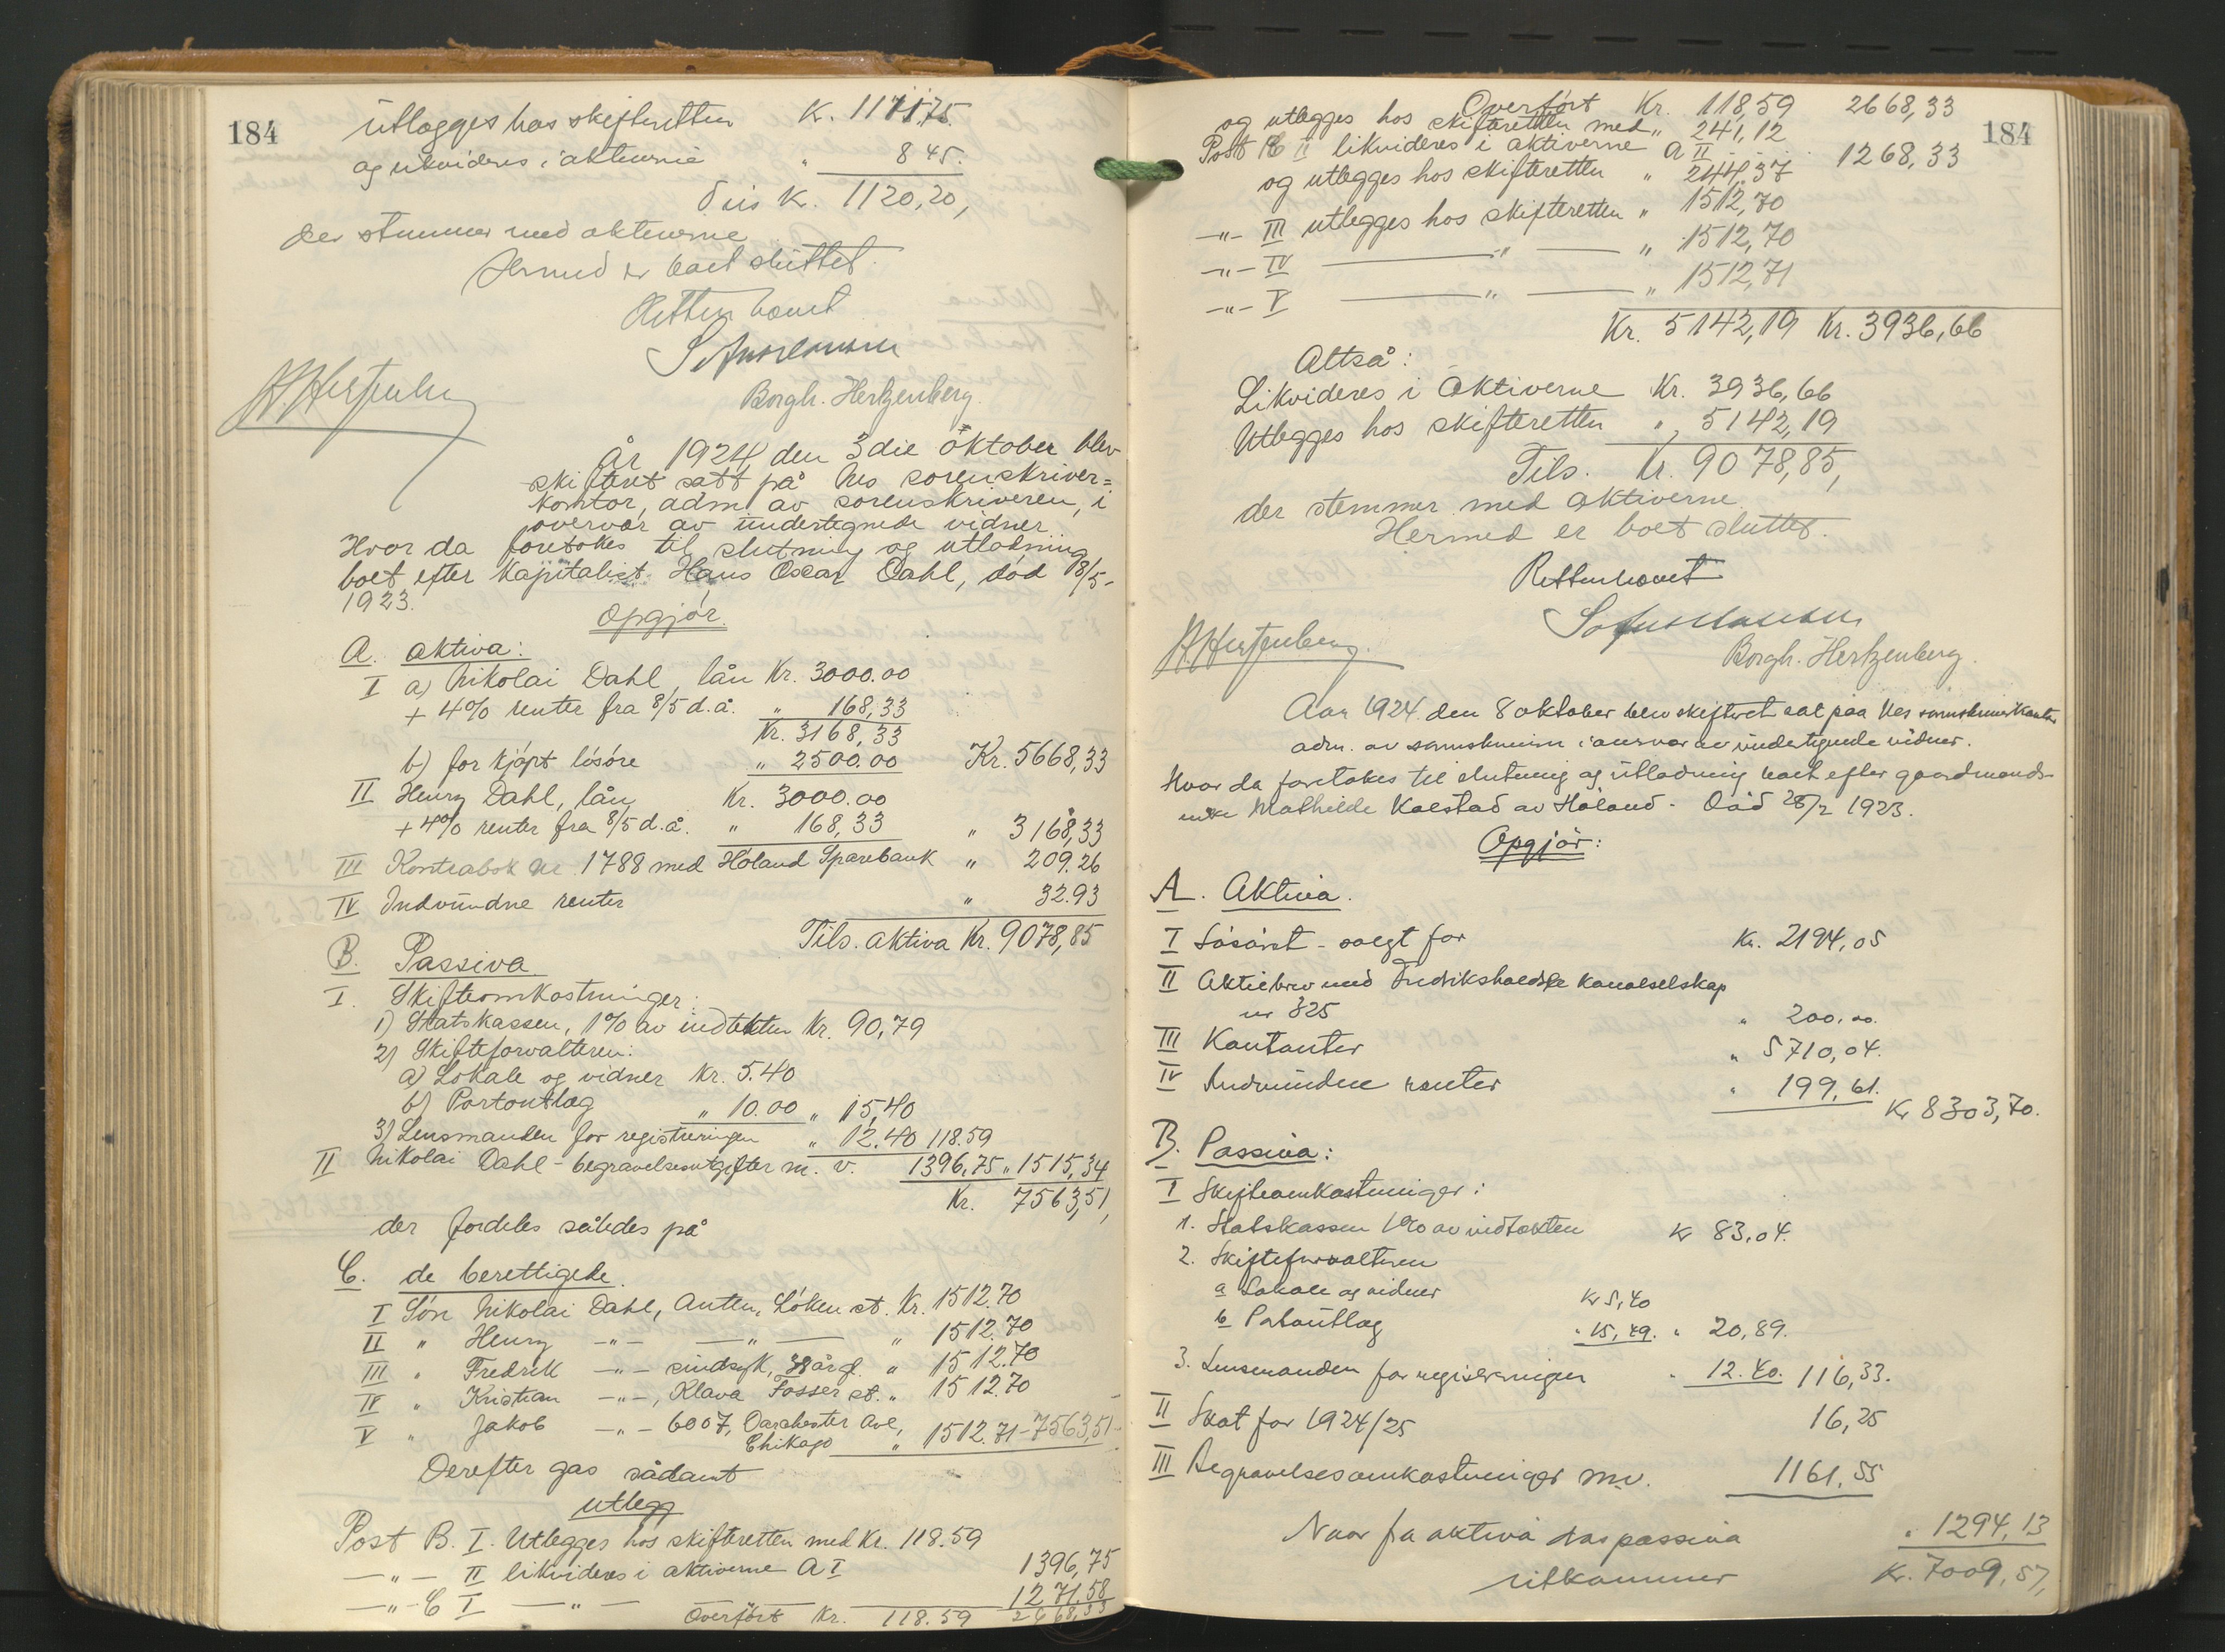 184
Utlægges hos skifteretten K. 1111.75.
og likvideres i aktiverne " 8 45.
Tils K. 1120,20,
der stemmer med aktiverne
Hermed er boet sluttet.
Retten hævet
H. Hertzenberg
Borgh. Hertzenberg.
År 1924 den 3die oktober blev
skifteret satt på Nes sorenskriver=
kontor, adm. av sorenskriveren, i
overvær av undertegnede vidner.
Hvor da foretokes til slutning og utlodning
boet efter kapitalist Hans Oscar Dahl, død 8/5-
1923.
Opgjör.
A. aktiva:
I a) Nikolai Dahl, lån Kr. 3000.00
+ 4% renter fra 8/5 d.å. " 168,33
Kr. 3168,33
b) for kjöpt lösöre " 2500.00 Kr. 5668,33
II Henry Dahl, lån Kr. 3000.00
+ 4% renter fra 8/5 d.å. " 168,33 " 3168,33
III Kontrabok No 1788 med Höland Sparebank " 209.26
IV Indvundne renter " 32.93
Tils. aktiva Kr. 9078,85
B. Passiva
I. Skifteomkostninger:
1) Statskassen, 1% av indtekten Kr. 90,79
2) Skifteforvalteren:
a) Lokale og vidner Kr. 5.40
b) Portoutlæg " 10.00 " 15,40
3) Lensmanden for registreringen " 12.40 118.59
II Nikolai Dahl - begravelsesutgifter m. v. 1396,75 " 1515,34
Kr. 7563,51,
der fordeles således på
C. de berettigede.
I Sön Nikolai Dahl, Anten, Löken st. Kr. 1512.70
II " Henry -"- -"- " 1512.70
III " Fredrik -"- sindsyk, " 1512.70
IV " Kristian -"-, Klava Fosser st. " 1512.70
V " Jakob -"- 6007, Darchester Ave,
Chikago " 1512.71 - 7563,51 -
Derefter gas sådant
utlegg
Post B. I. Utlegges hos skifteretten med Kr. 118.59
-"- II likvideres i aktiverne A I 1396,75
-"- C I -"- 1271.58
Overfört Kr. 118.59 2668,33
184
Overfört Kr. 118,59 2668,33
og utlegges hos skifteretten med " 241,12
Post C II likvideres i aktiverne A II . . . 1268,33
og utlegges hos skifteretten " 244,37
-"- III utlegges hos skifteretten " 1512,70
-"- IV -"- " 1512,70
-"- V -"- " 1512,71
Kr. 5142,19 Kr. 3936,66
Altså:
Likvideres i aktiverne Kr. 3936,66
Utlegges hos skifteretten " 5142,19
Tils. Kr. 9078,85,
der stemmer med aktiverne
Hermed er boet sluttet.
Retten hævet
H. Hertzenberg.
Borgh. Hertzenberg.
Aar 1924 den 8 oktober blev skifteret sat paa Nes sorenskriverkontor
adm. av sorenskriveren i overvær av undertegnede vidner.
Hvor da foretokes til slutning og utlodning boet efter gaardmands-
enke Mathilde Kolstad av Höland - Död 28/2 1923.
Opgjör:
A. Aktiva.
I Lösöret - solgt for Kr. 2194,05
II Aktiebrev med Fredrikshaldske Kanalselskap
nr 325 " 200,00.
III Kontanter " 5710,04.
IV Indvundne renter " 199,61. Kr 8303,70.
B. Passiva:
I Skifteomkostninger:
1. Statskassen 1% av indtækten Kr 83,04.
2. Skifteforvalteren
a Lokale og vidner Kr 5,40
b Portoutlæg " 15,49. " 20,89.
3. Lensmanden for registreringen " 12.40. 116,33.
II Skat for 1924/25 16,25
III Begravelsesomkostninger m.v. 1161,55
Naar fra aktiva das passiva " 1294,13
utkommer Kr. 7009,57,